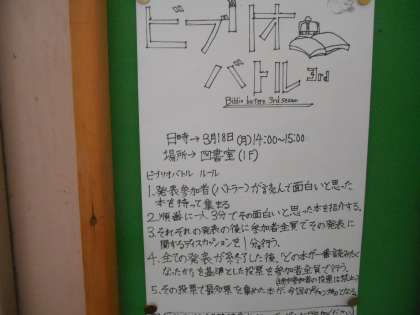 ビブリオ
バトル 3rd
Biblio battle 3rd season
日時→3月18日(月)14:00~15:00
場所→図書室(1F)
ビブリオバトル ルール
1.発表参加者(バトラー)が読んで面白いと思った
本を持って集まる
2.順番に一人3分でその面白いと思った本を紹介する。
3.それぞれの発表の後に参加者全員でその発表に
関するディスカッションを1分行う。
4.全ての発表が終了した後、「どの本が一番読みたく
なったか」を基準とした投票を参加者全員で行う。
5.その投票で最多票を集めた本が、今回のチャンプ本となる。